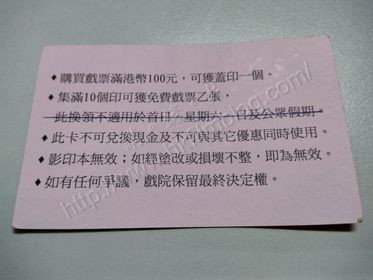 ♦ 購買戲票滿港幣100元，可獲蓋印一個。
♦ 集滿10個印可獲免費戲票乙張，
此換領不適用於首日、星期六、日及公眾假期。
♦ 此卡不可兌換現金及不可與其它優惠同時使用。
♦ 影印本無效；如經塗改或損壞不整，即為無效。
♦ 如有任何爭議，戲院保留最終決定權。